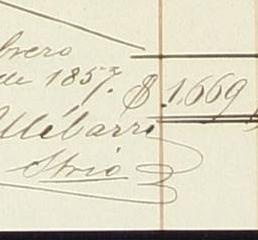 brero
de 1857. $ 1.669
Ulibarri
Srio